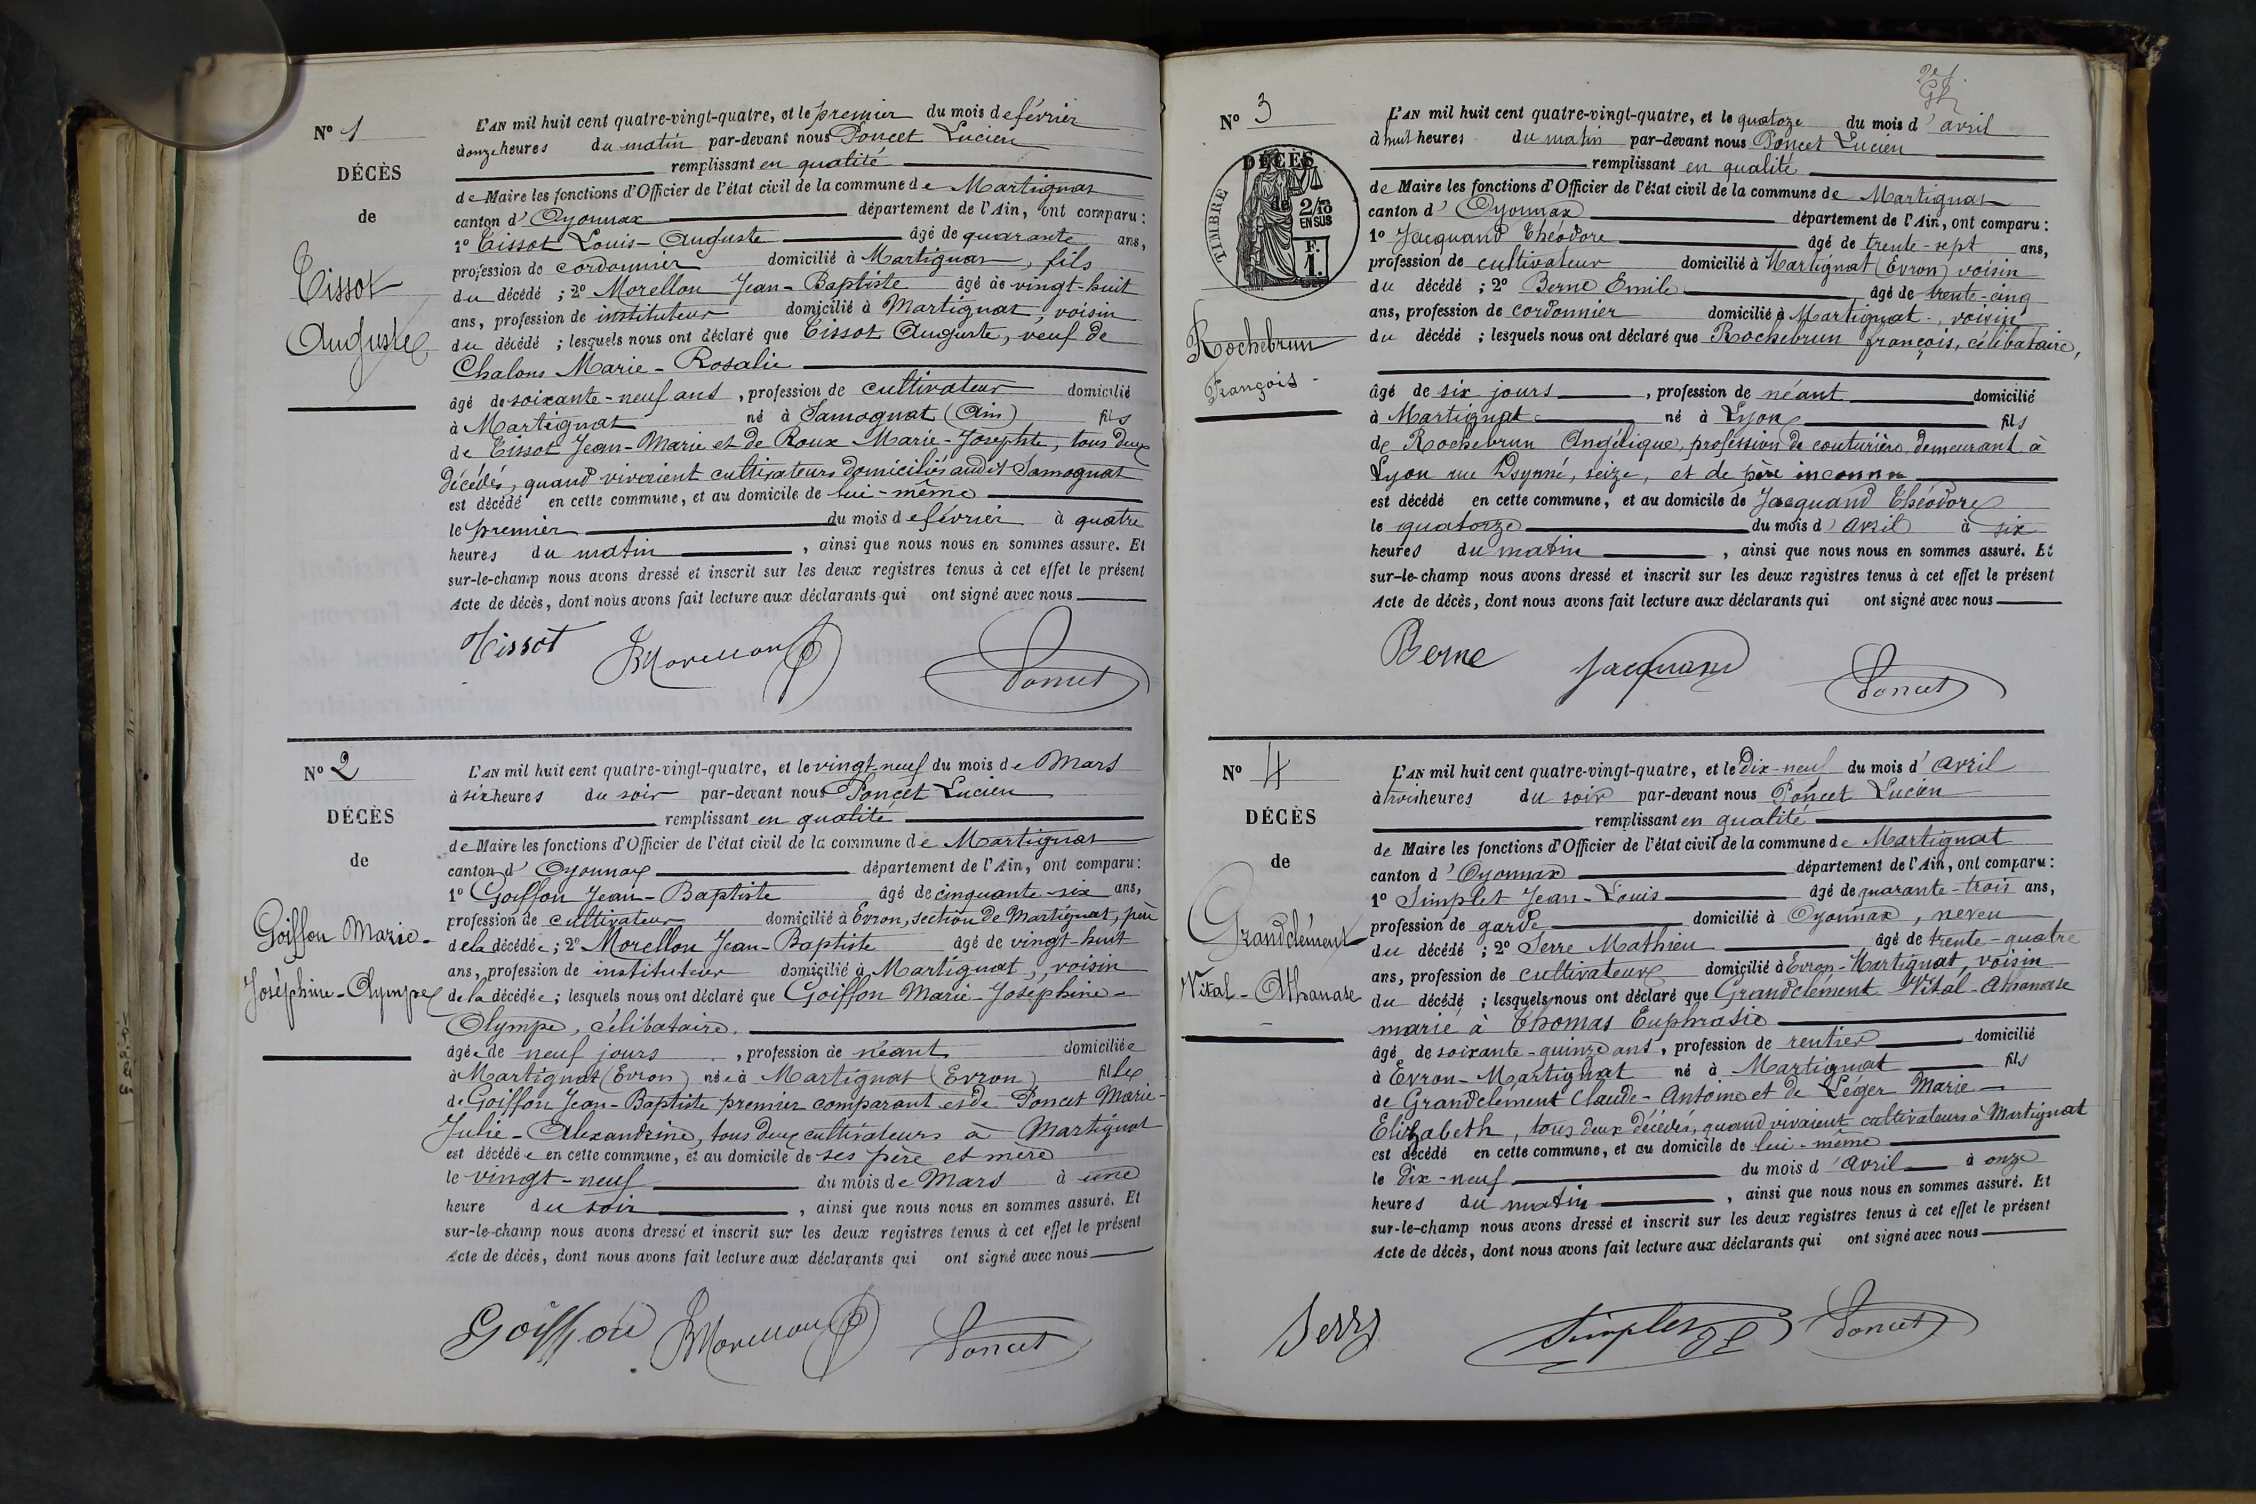 N° 1
DÉCÈS
de
Tissot
Auguste
L'AN mil huit cent quatre-vingt-quatre, et le premier du mois de février
à onze heures du matin par-devant nous Poncet Lucien
remplissant en qualité
de Maire les fonctions d'Officier de l'état civil de la commune de Martignat
canton d'Oyonnax département de l'Ain, ont comparu :
1° Tissot Louis-Auguste âgé de quarante ans,
profession de cordonnier domicilié à Martignat, fils
du décédé ; 2° Morellon Jean-Baptiste âgé de vingt-huit
ans, profession de instituteur domicilié à Martignat, voisin
du décédé ; lesquels nous ont déclaré que Tissot Auguste, veuf de
Chalons Marie-Rosalie
âgé de soixante-neuf ans, profession de cultivateur domicilié
à Martignat né à Samognat (Ain) fils
de Tissot Jean-Marie et de Roux Marie-Josephte, tous deux
décédés, quand vivaient cultivateurs domiciliés audit Samognat
est décédé en cette commune, et au domicile de lui-même
le premier du mois de février à quatre
heures du matin, ainsi que nous nous en sommes assuré. Et
sur-le-champ nous avons dressé et inscrit sur les deux registres tenus à cet effet le présent
Acte de décès, dont nous avons fait lecture aux déclarants qui ont signé avec nous
Tissot JBMorellon Poncet
N° 2
DÉCÈS
de
Goiffon Marie-
Joséphine-Olympe
L'AN mil huit cent quatre-vingt-quatre, et le vingt-neuf du mois de Mars
à six heures du soir par-devant nous Poncet Lucien
remplissant en qualité
de Maire les fonctions d'Officier de l'état civil de la commune de Martignat
canton d'Oyonnax département de l'Ain, ont comparu :
1° Goiffon Jean-Baptiste âgé de cinquante-six ans,
profession de cultivateur domicilié à Evron, section de Martignat, père
de la décédée ; 2° Morellon Jean-Baptiste âgé de vingt-huit
ans, profession de instituteur domicilié à Martignat, voisin
de la décédée ; lesquels nous ont déclaré que Goiffon Marie-Joséphine-
Olympe, célibataire.
âgée de neuf jours, profession de néant domiciliée
à Martignat (Evron) née à Martignat (Evron) fille
de Goiffon Jean-Baptiste premier comparant et de Poncet Marie-
Julie-Alexandrine, tous deux cultivateurs à Martignat
est décédée en cette commune, et au domicile de ses père et mère
le vingt-neuf du mois de Mars à une
heure du soir, ainsi que nous nous en sommes assuré. Et
sur-le-champ nous avons dressé et inscrit sur les deux registres tenus à cet effet le présent
Acte de décès, dont nous avons fait lecture aux déclarants qui ont signé avec nous
Goiffon JBMorellon Poncet
N° 3
DÉCÈS
de
TIMBRE
2/10
EN SUS
F.
1.
Rochebrun
François
L'AN mil huit cent quatre-vingt-quatre, et le quatoze du mois d'avril
à huit heures du matin par-devant nous Poncet Lucien
remplissant en qualité
de Maire les fonctions d'Officier de l'état civil de la commune de Martignat
canton d'Oyonnax département de l'Ain, ont comparu :
1° Jacquand Théodore âgé de trente-sept ans,
profession de cultivateur domicilié à Martignat (Evron) voisin
du décédé ; 2° Berne Emile âgé de trente-cinq
ans, profession de cordonnier domicilié à Martignat, voisin
du décédé ; lesquels nous ont déclaré que Rochebrun françois, célibataire,
âgé de six jours, profession de néant domicilié
à Martignat né à Lyon fils
de Rochebrun Angélique, profession de couturière demeurant à
Lyon rue seize, et de père inconnu
est décédé en cette commune, et au domicile de Jacquand Théodore
le quatorze du mois d'avril à six
heures du matin, ainsi que nous nous en sommes assuré. Et
sur-le-champ nous avons dressé et inscrit sur les deux registres tenus à cet effet le présent
Acte de décès, dont nous avons fait lecture aux déclarants qui ont signé avec nous
Berne Jacquand Poncet
N° 4
DÉCÈS
de
Grandclément
Vital-Athanase
L'AN mil huit cent quatre-vingt-quatre, et le Dix-neuf du mois d'avril
à trois heures du soir par-devant nous Poncet Lucien
remplissant en qualité
de Maire les fonctions d'Officier de l'état civil de la commune de Martignat
canton d'Oyonnax département de l'Ain, ont comparu :
1° Simplet Jean-Louis âgé de quarante-trois ans,
profession de garde domicilié à Oyonnax, neveu
du décédé ; 2° Serre Mathieu âgé de trente-quatre
ans, profession de cultivateur domicilié à Evron-Martignat, voisin
du décédé ; lesquels nous ont déclaré que Grandclément Vital-Athanase
marié à Thomas Euphrasie
âgé de soixante-quinze ans, profession de rentier domicilié
à Evron-Martignat né à Martignat fils
de Grandclément Claude-Antoine et de Léger Marie-
Elizabeth, tous deux décédés, quand vivaient cultivateurs à Martignat
est décédé en cette commune, et au domicile de lui-même
le dix-neuf du mois d'avril à onze
heures du matin, ainsi que nous nous en sommes assuré. Et
sur-le-champ nous avons dressé et inscrit sur les deux registres tenus à cet effet le présent
Acte de décès, dont nous avons fait lecture aux déclarants qui ont signé avec nous
Serre Simplet Poncet